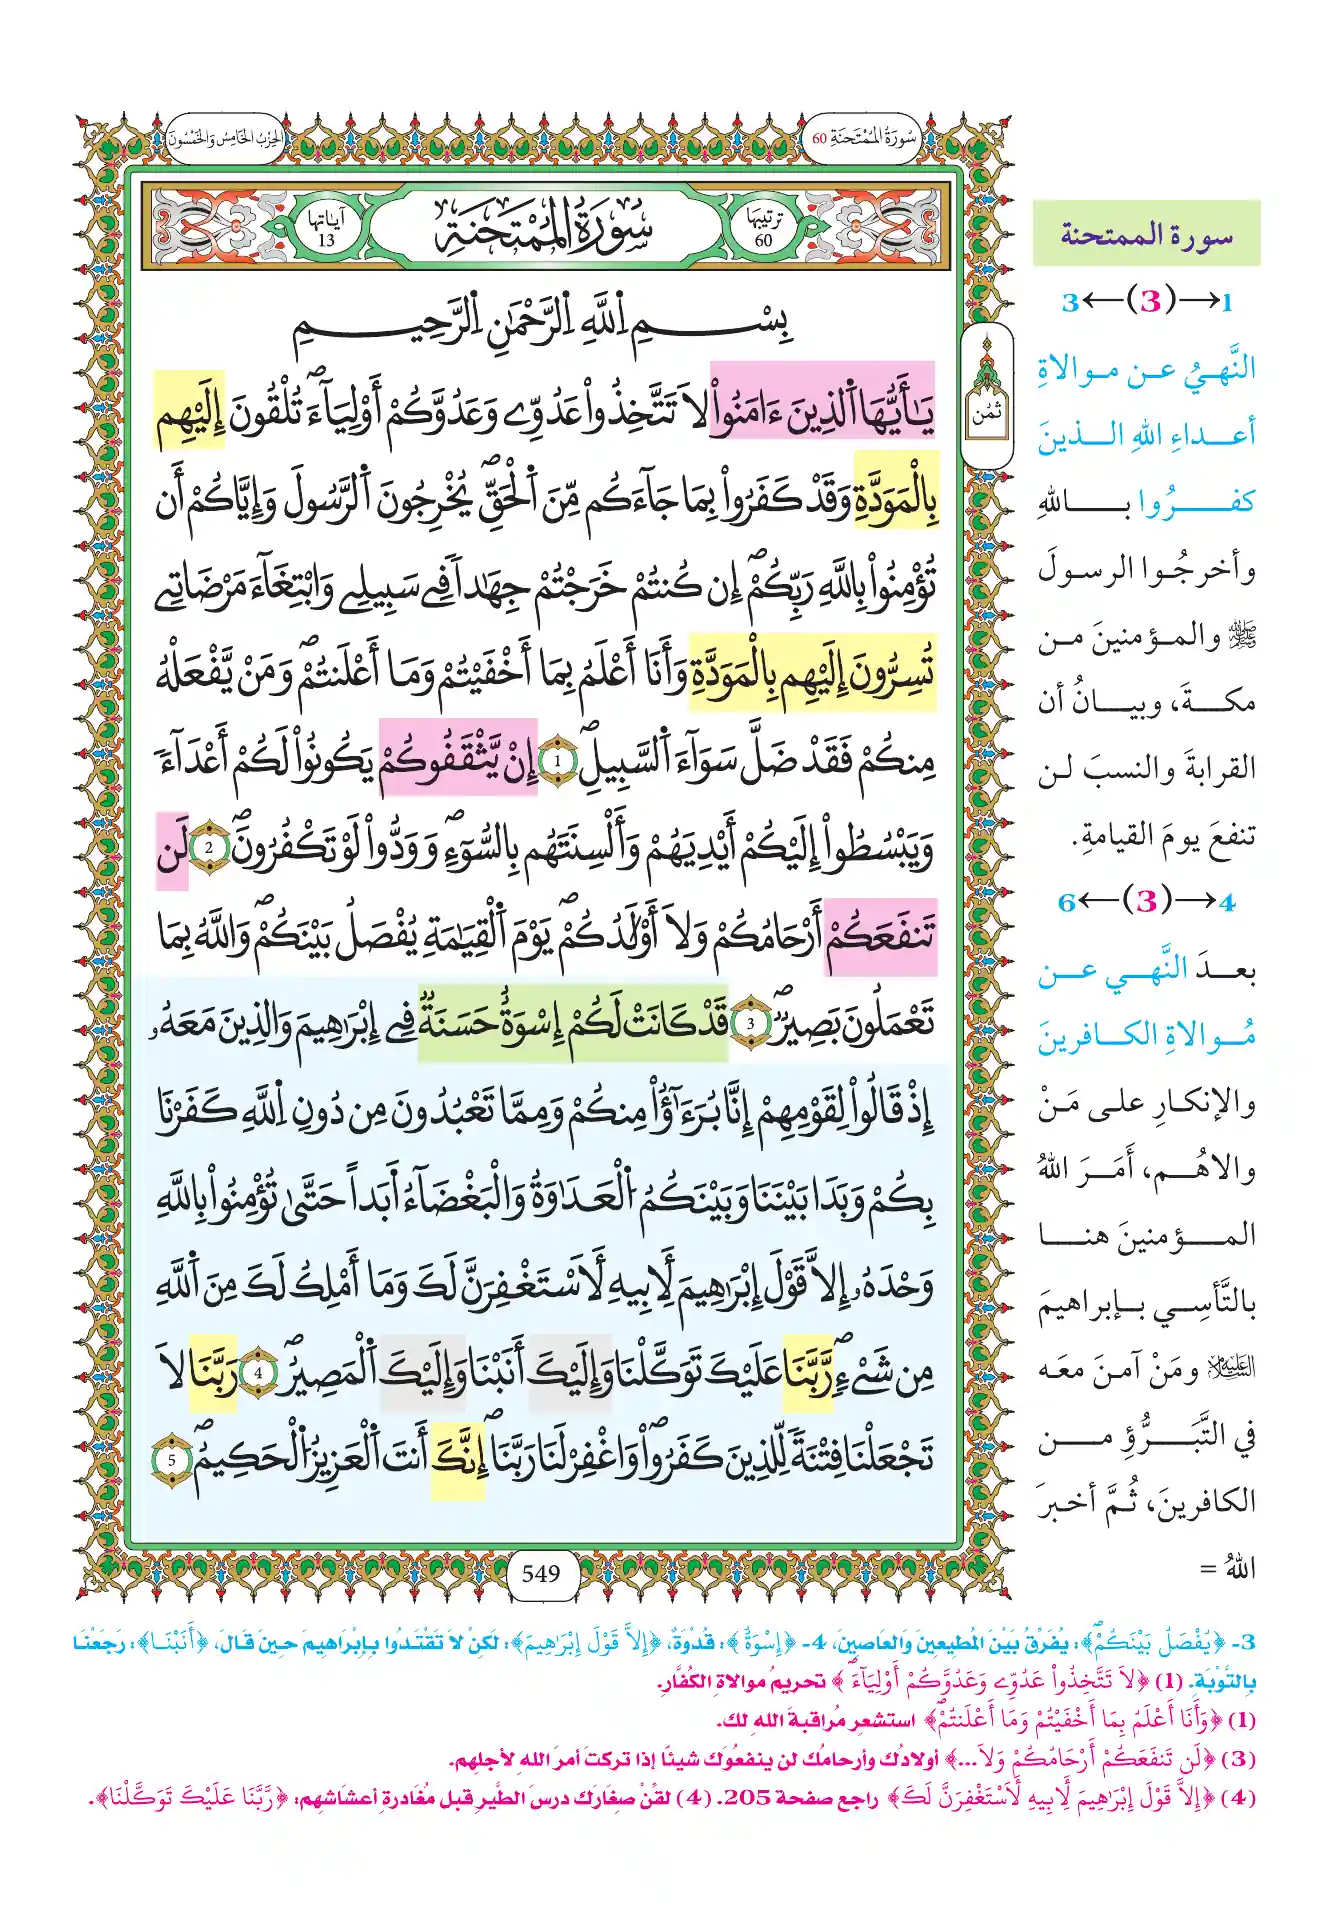 سُورَةُ المُمْتَحَنَةِ 60
الحِزْبُ الخَامِسُ وَالخَمْسُونَ
ترتيبها 60
سُورَةُ المُمْتَحَنَةِ
آياتها 13
بِسْمِ اِ۬للَّهِ اِ۬لرَّحْمَٰنِ اِ۬لرَّحِيمِ
يَٰٓأَيُّهَا اَ۬لذِينَ ءَامَنُواْ لَا تَتَّخِذُواْ عَدُوِّے وَعَدُوَّكُمْ أَوْلِيَآءَۖ تُلْقُونَ إِلَيْهِم
بِالْمَوَدَّةِ وَقَدْ كَفَرُواْ بِمَا جَآءَكُم مِّنَ اَ۬لْحَقِّۖ يُخْرِجُونَ اَ۬لرَّسُولَ وَإِيَّاكُمْ أَن
تُؤْمِنُواْ بِاللَّهِ رَبِّكُمْۖ إِن كُنتُمْ خَرَجْتُمْ جِهَٰداٗ فِے سَبِيلِے وَابْتِغَآءَ مَرْضَاتِے
تُسِرُّونَ إِلَيْهِم بِالْمَوَدَّةِ وَأَنَا أَعْلَمُ بِمَا أَخْفَيْتُمْ وَمَا أَعْلَنتُمْۖ وَمَنْ يَّفْعَلْهُ
مِنكُمْ فَقَدْ ضَلَّ سَوَآءَ اَ۬لسَّبِيلِۖ 1 إِنْ يَّثْقَفُوكُمْ يَكُونُواْ لَكُمْ أَعْدَآءٗ
وَيَبْسُطُواْ إِلَيْكُمْ أَيْدِيَهُمْ وَأَلْسِنَتَهُم بِالسُّوٓءِۖ وَوَدُّواْ لَوْ تَكْفُرُونَۖ 2 لَن
تَنفَعَكُمْ أَرْحَامُكُمْ وَلَا أَوْلَٰدُكُمْۖ يَوْمَ اَ۬لْقِيَٰمَةِ يُفْصَلُ بَيْنَكُمْۖ وَاللَّهُ بِمَا
تَعْمَلُونَ بَصِيرٞۖ 3 قَدْ كَانَتْ لَكُمْ إِسْوَةٌ حَسَنَةٞ فِے إِبْرَٰهِيمَ وَالذِينَ مَعَهُۥ
إِذْ قَالُواْ لِقَوْمِهِمْ إِنَّا بُرَءَٰٓؤُاْ مِنكُمْ وَمِمَّا تَعْبُدُونَ مِن دُونِ اِ۬للَّهِ كَفَرْنَا
بِكُمْ وَبَدَا بَيْنَنَا وَبَيْنَكُمُ اُ۬لْعَدَٰوَةُ وَالْبَغْضَآءُ اَ۬بَداً حَتَّىٰ تُؤْمِنُواْ بِاللَّهِ
وَحْدَهُۥ إِلَّا قَوْلَ إِبْرَٰهِيمَ لِأَبِيهِ لَأَسْتَغْفِرَنَّ لَكَ وَمَا أَمْلِكُ لَكَ مِنَ اَ۬للَّهِ
مِن شَےْءٖۖ رَّبَّنَا عَلَيْكَ تَوَكَّلْنَا وَإِلَيْكَ أَنَبْنَا وَإِلَيْكَ اَ۬لْمَصِيرُۖ 4 رَبَّنَا لَا
تَجْعَلْنَا فِتْنَةٗ لِّلذِينَ كَفَرُواْۖ وَاغْفِرْ لَنَا رَبَّنَاۖ إِنَّكَ أَنتَ اَ۬لْعَزِيزُ اُ۬لْحَكِيمُۖ 5
ثُمُن
549
سورة الممتحنة
1→(3)←3
النَّهيُ عن موالاةِ
أعداءِ اللهِ الذينَ
كفرُوا باللهِ
وأخرجُوا الرسولَ
ﷺ والمؤمنينَ من
مكةَ، وبيانُ أن
القرابةَ والنسبَ لن
تنفعَ يومَ القيامةِ.
4→(3)←6
بعدَ النَّهي عن
مُوالاةِ الكافرينَ
والإنكارِ على مَنْ
والاهُم، أَمَرَ اللهُ
المؤمنينَ هنا
بالتَّأسِي بإبراهيمَ
عليه السلام ومَنْ آمنَ معَه
في التَّبَرُّؤِ من
الكافرينَ، ثُمَّ أخبرَ
اللهُ =
3- ﴿يُفْصَلُ بَيْنَكُمْۖ﴾: يُفَرِّقُ بَيْنَ المُطِيعِينَ وَالعَاصِينَ، 4- ﴿إِسْوَةٌ﴾: قُدْوَةٌ، ﴿إِلَّا قَوْلَ إِبْرَٰهِيمَ﴾: لَكِنْ لَا تَقْتَدُوا بِإِبْرَاهِيمَ حِينَ قَالَ، ﴿أَنَبْنَا﴾: رَجَعْنَا
بِالتَّوْبَةِ. (1) ﴿لَا تَتَّخِذُواْ عَدُوِّے وَعَدُوَّكُمْ أَوْلِيَآءَۖ﴾ تحريمُ موالاةِ الكُفَّارِ.
(1) ﴿وَأَنَا أَعْلَمُ بِمَا أَخْفَيْتُمْ وَمَا أَعْلَنتُمْۖ﴾ استشعر مُراقبةَ اللهِ لك.
(3) ﴿لَن تَنفَعَكُمْ أَرْحَامُكُمْ وَلَا...﴾ أولادُك وأرحامُك لن ينفعُوك شيئًا إذا تركتَ أمرَ اللهِ لأجلِهم.
(4) ﴿إِلَّا قَوْلَ إِبْرَٰهِيمَ لِأَبِيهِ لَأَسْتَغْفِرَنَّ لَكَ﴾ راجع صفحة 205. (4) لقِّنْ صغارَك درسَ الطَّيرِ قبل مُغادرةِ أعشاشِهم: ﴿رَّبَّنَا عَلَيْكَ تَوَكَّلْنَا﴾.